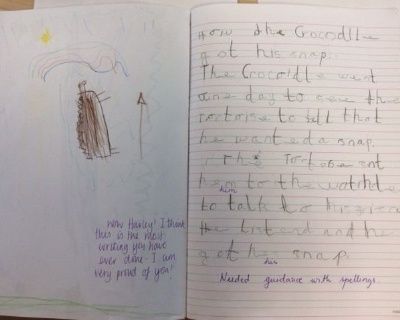 wow Harley! I think
this is the most
writing you have
ever done. I am
very proud of you!
How the Crocodile
got his snap.
The Crocidle went
one day to see the
tortoise to tell that
he wanted a snap.
The Tortoise snt
him
to the
to talk to his
the and he
got he snap.
his
Needed guidance with spellings.